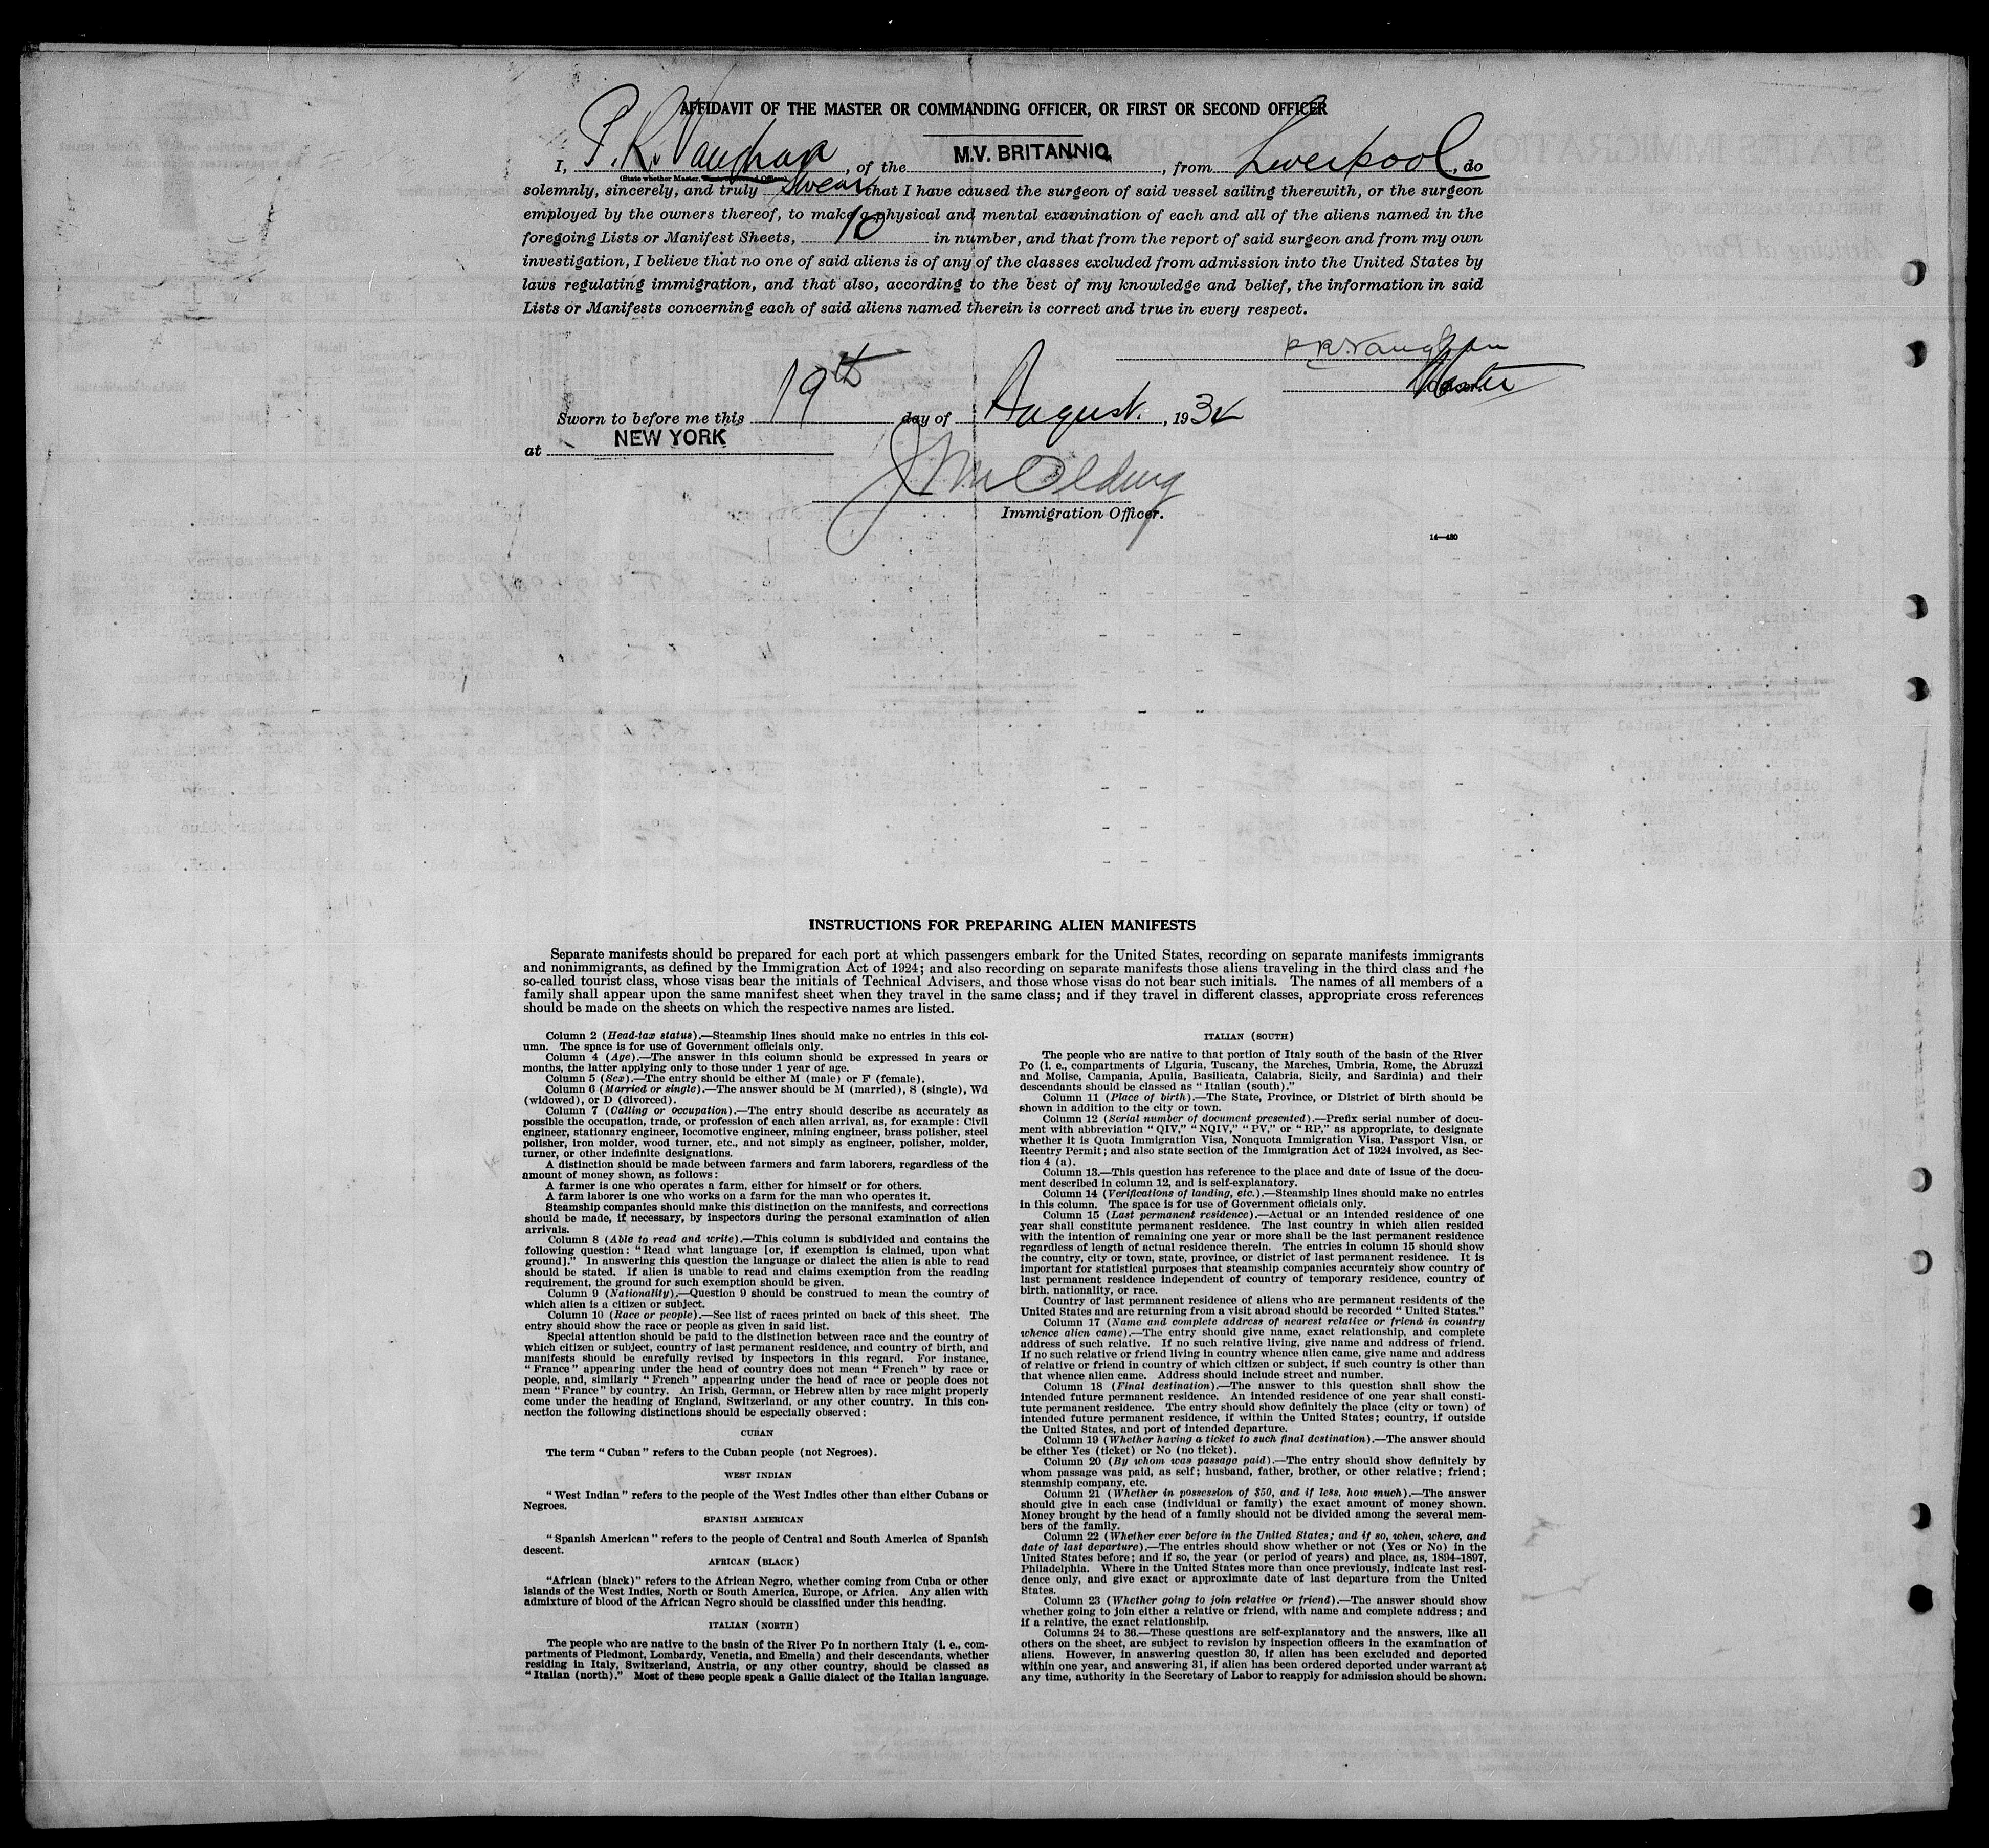 AFFIDAVIT OF THE MASTER OR COMMANDING OFFICER, OR FIRST OR SECOND OFFICER
I, P. R. Vaughan, of the M.V. BRITANNIC, from Liverpool, do
(State whether Master, First, or Second Officer)
solemnly, sincerely, and truly swear that I have caused the surgeon of said vessel sailing therewith, or the surgeon
employed by the owners thereof, to make a physical and mental examination of each and all of the aliens named in the
foregoing Lists or Manifest Sheets, 10 in number, and that from the report of said surgeon and from my own
investigation, I believe that no one of said aliens is of any of the classes excluded from admission into the United States by
laws regulating immigration, and that also, according to the best of my knowledge and belief, the information in said
Lists or Manifests concerning each of said aliens named therein is correct and true in every respect.
P R Vaughan
Master
Sworn to before me this 19th day of August, 1932
at NEW YORK
Immigration Officer.
14—430
INSTRUCTIONS FOR PREPARING ALIEN MANIFESTS
Separate manifests should be prepared for each port at which passengers embark for the United States, recording on separate manifests immigrants
and nonimmigrants, as defined by the Immigration Act of 1924; and also recording on separate manifests those aliens traveling in the third class and the
so-called tourist class, whose visas bear the initials of Technical Advisers, and those whose visas do not bear such initials. The names of all members of a
family shall appear upon the same manifest sheet when they travel in the same class; and if they travel in different classes, appropriate cross references
should be made on the sheets on which the respective names are listed.
Column 2 (Head-tax status).—Steamship lines should make no entries in this col-
umn. The space is for use of Government officials only.
Column 4 (Age).—The answer in this column should be expressed in years or
months, the latter applying only to those under 1 year of age.
Column 5 (Sex).—The entry should be either M (male) or F (female).
Column 6 (Married or single).—The answer should be M (married), S (single), Wd
(widowed), or D (divorced).
Column 7 (Calling or occupation).—The entry should describe as accurately as
possible the occupation, trade, or profession of each alien arrival, as, for example: Civil
engineer, stationary engineer, locomotive engineer, mining engineer, brass polisher, steel
polisher, iron molder, wood turner, etc., and not simply as engineer, polisher, molder,
turner, or other indefinite designations.
A distinction should be made between farmers and farm laborers, regardless of the
amount of money shown, as follows:
A farmer is one who operates a farm, either for himself or for others.
A farm laborer is one who works on a farm for the man who operates it.
Steamship companies should make this distinction on the manifests, and corrections
should be made, if necessary, by inspectors during the personal examination of alien
arrivals.
Column 8 (Able to read and write).—This column is subdivided and contains the
following question: "Read what language [or, if exemption is claimed, upon what
ground]." In answering this question the language or dialect the alien is able to read
should be stated. If alien is unable to read and claims exemption from the reading
requirement, the ground for such exemption should be given.
Column 9 (Nationality).—Question 9 should be construed to mean the country of
which alien is a citizen or subject.
Column 10 (Race or people).—See list of races printed on back of this sheet. The
entry should show the race or people as given in said list.
Special attention should be paid to the distinction between race and the country of
which citizen or subject, country of last permanent residence, and country of birth, and
manifests should be carefully revised by inspectors in this regard. For instance,
"France" appearing under the head of country does not mean "French" by race or
people, and, similarly "French" appearing under the head of race or people does not
mean "France" by country. An Irish, German, or Hebrew alien by race might properly
come under the heading of England, Switzerland, or any other country. In this con-
nection the following distinctions should be especially observed:
CUBAN
The term "Cuban" refers to the Cuban people (not Negroes).
WEST INDIAN
"West Indian" refers to the people of the West Indies other than either Cubans or
Negroes.
SPANISH AMERICAN
"Spanish American" refers to the people of Central and South America of Spanish
descent.
AFRICAN (BLACK)
"African (black)" refers to the African Negro, whether coming from Cuba or other
islands of the West Indies, North or South America, Europe, or Africa. Any alien with
admixture of blood of the African Negro should be classified under this heading.
ITALIAN (NORTH)
The people who are native to the basin of the River Po in northern Italy (i. e., com-
partments of Piedmont, Lombardy, Venetia, and Emelia) and their descendants, whether
residing in Italy, Switzerland, Austria, or any other country, should be classed as
"Italian (north)." Most of these people speak a Gallic dialect of the Italian language.
ITALIAN (SOUTH)
The people who are native to that portion of Italy south of the basin of the River
Po (i. e., compartments of Liguria, Tuscany, the Marches, Umbria, Rome, the Abruzzi
and Molise, Campania, Apulia, Basilicata, Calabria, Sicily, and Sardinia) and their
descendants should be classed as "Italian (south)."
Column 11 (Place of birth).—The State, Province, or District of birth should be
shown in addition to the city or town.
Column 12 (Serial number of document presented).—Prefix serial number of docu-
ment with abbreviation "QIV," "NQIV," "PV," or "RP," as appropriate, to designate
whether it is Quota Immigration Visa, Nonquota Immigration Visa, Passport Visa, or
Reentry Permit; and also state section of the Immigration Act of 1924 involved, as Sec-
tion 4 (a).
Column 13.—This question has reference to the place and date of issue of the docu-
ment described in column 12, and is self-explanatory.
Column 14 (Verifications of landing, etc.).—Steamship lines should make no entries
in this column. The space is for use of Government officials only.
Column 15 (Last permanent residence).—Actual or an intended residence of one
year shall constitute permanent residence. The last country in which alien resided
with the intention of remaining one year or more shall be the last permanent residence
regardless of length of actual residence therein. The entries in column 15 should show
the country, city or town, state, province, or district of last permanent residence. It is
important for statistical purposes that steamship companies accurately show country of
last permanent residence independent of country of temporary residence, country of
birth, nationality, or race.
Country of last permanent residence of aliens who are permanent residents of the
United States and are returning from a visit abroad should be recorded "United States."
Column 17 (Name and complete address of nearest relative or friend in country
whence alien came).—The entry should give name, exact relationship, and complete
address of such relative. If no such relative living, give name and address of friend.
If no such relative or friend living in country whence alien came, give name and address
of relative or friend in country of which citizen or subject, if such country is other than
that whence alien came. Address should include street and number.
Column 18 (Final destination).—The answer to this question shall show the
intended future permanent residence. An intended residence of one year shall consti-
tute permanent residence. The entry should show definitely the place (city or town) of
intended future permanent residence, if within the United States; country, if outside
the United States, and port of intended departure.
Column 19 (Whether having a ticket to such final destination).—The answer should
be either Yes (ticket) or No (no ticket).
Column 20 (By whom was passage paid).—The entry should show definitely by
whom passage was paid, as self; husband, father, brother, or other relative; friend;
steamship company, etc.
Column 21 (Whether in possession of $50, and if less, how much).—The answer
should give in each case (individual or family) the exact amount of money shown.
Money brought by the head of a family should not be divided among the several mem-
bers of the family.
Column 22 (Whether ever before in the United States; and if so, when, where, and
date of last departure).—The entries should show whether or not (Yes or No) in the
United States before; and if so, the year (or period of years) and place, as, 1894–1897,
Philadelphia. Where in the United States more than once previously, indicate last resi-
dence only, and give exact or approximate date of last departure from the United
States.
Column 23 (Whether going to join relative or friend).—The answer should show
whether going to join either a relative or friend, with name and complete address; and
if a relative, the exact relationship.
Columns 24 to 36.—These questions are self-explanatory and the answers, like all
others on the sheet, are subject to revision by inspection officers in the examination of
aliens. However, in answering question 30, if alien has been excluded and deported
within one year, and answering 31, if alien has been ordered deported under warrant at
any time, authority in the Secretary of Labor to reapply for admission should be shown.